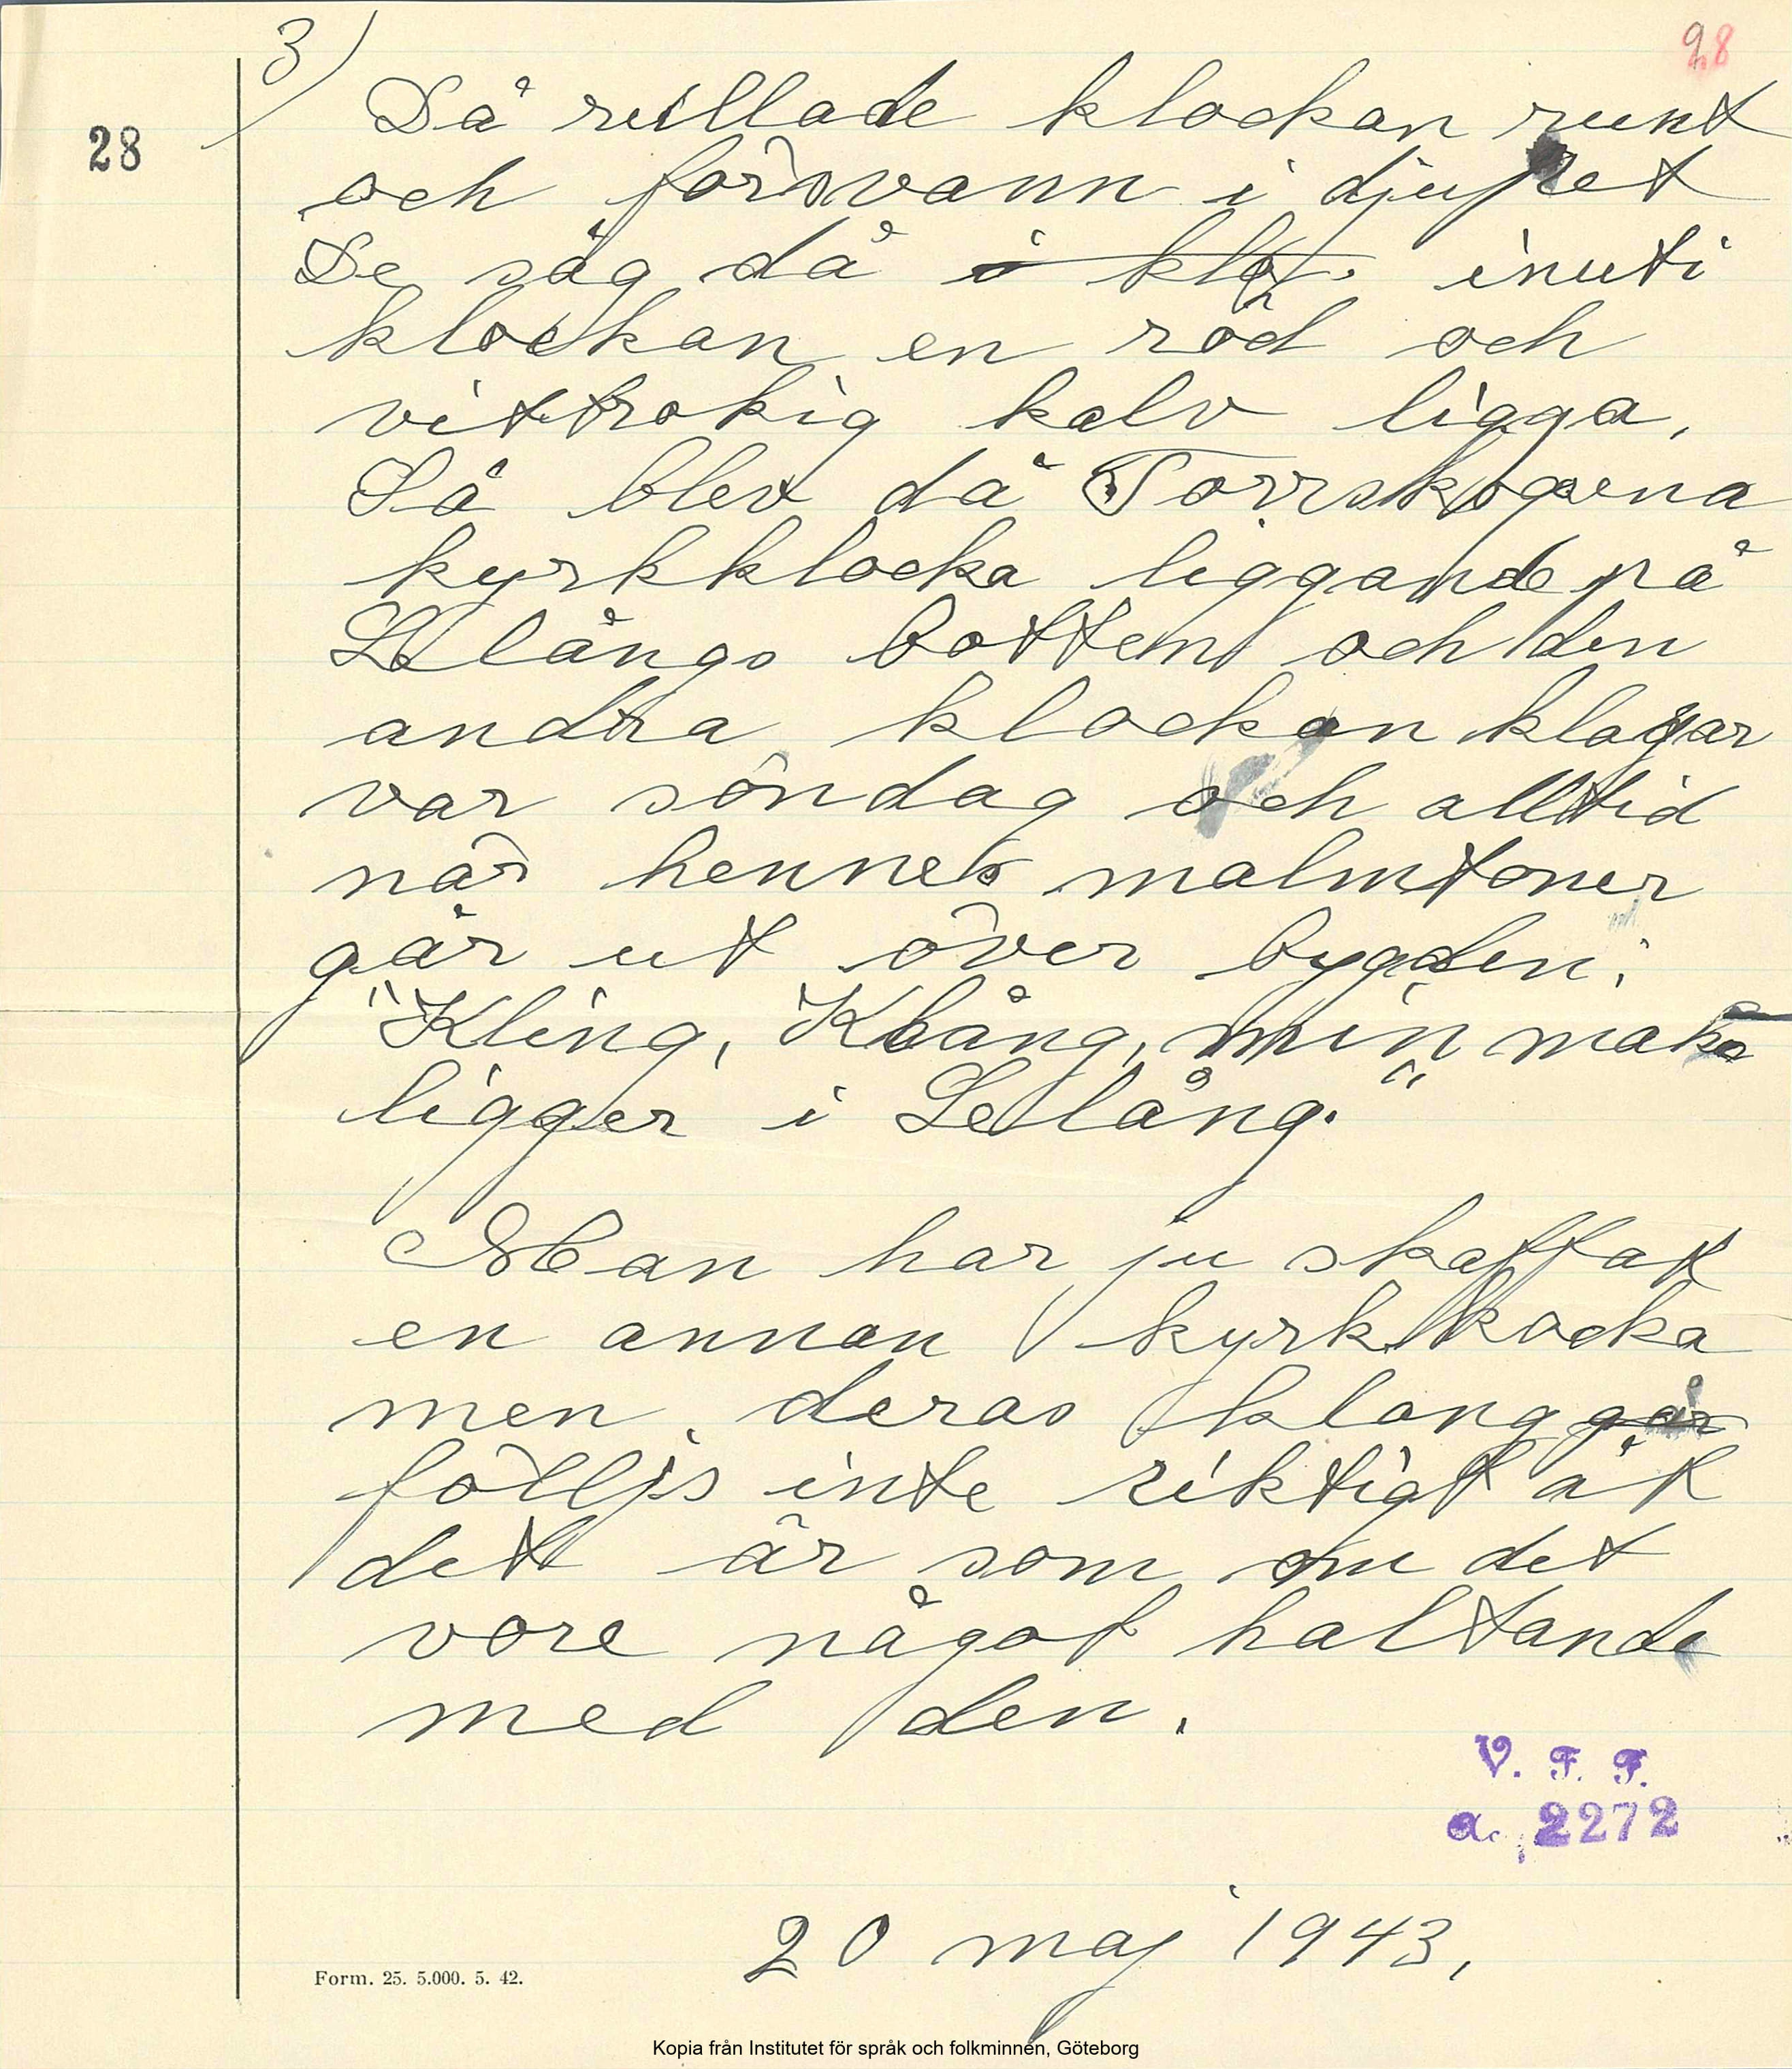 3)
28
28
Då rullade klockan runt
och försvann i djupet
De såg då i klo. inuti
klockan en röd och
vittrokig kalv ligga,
Så blev då Torrskogena
kyrkklocka liggande på
Lelångs bottem och den
andra klockan klagar
var söndag och alltid
när hennes malmtoner
går ut över bygden;
"Kling, Klång, min maka
ligger i Lelång."
Man har ju skaffat
en annan kyrkklocka
men deras klang går
följjs inte riktigt åt
det är som om det
vore något haltande
med den.
V. F. F.
a. 2272
20 maj 1943,
Form. 25. 5.000. 5. 42.
Kopia från Institutet för språk och folkminnen, Göteborg